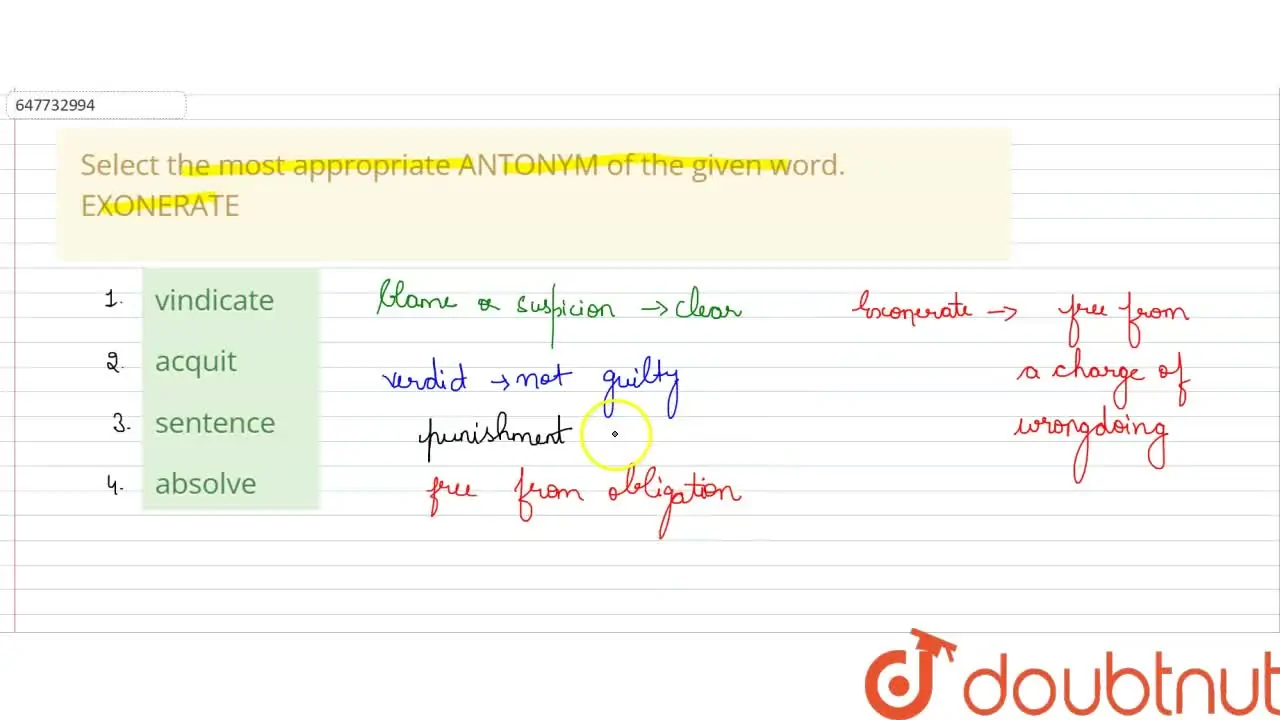 647732994
Select the most appropriate ANTONYM of the given word.
EXONERATE
1. vindicate blame or suspicion → clear Exonerate → free from
2. acquit verdict → not guilty a charge of
3. sentence punishment wrongdoing
4. absolve free from obligation
doubtnut